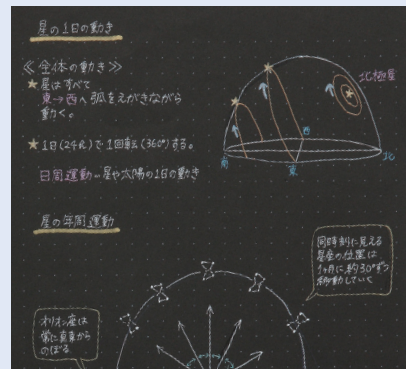 星の1日の動き
≪全体の動き≫
★星はすべて
東→西へ弧をえがきながら
動く。
★1日(24h)で1回転(360°)する。
日周運動…星や太陽の1日の動き
北極星
西
南
東
北
星の年周運動
同時刻に見える
星座の位置は
1ヶ月に約30°ずつ
移動していく
オリオン座は
常に真東から
のぼる